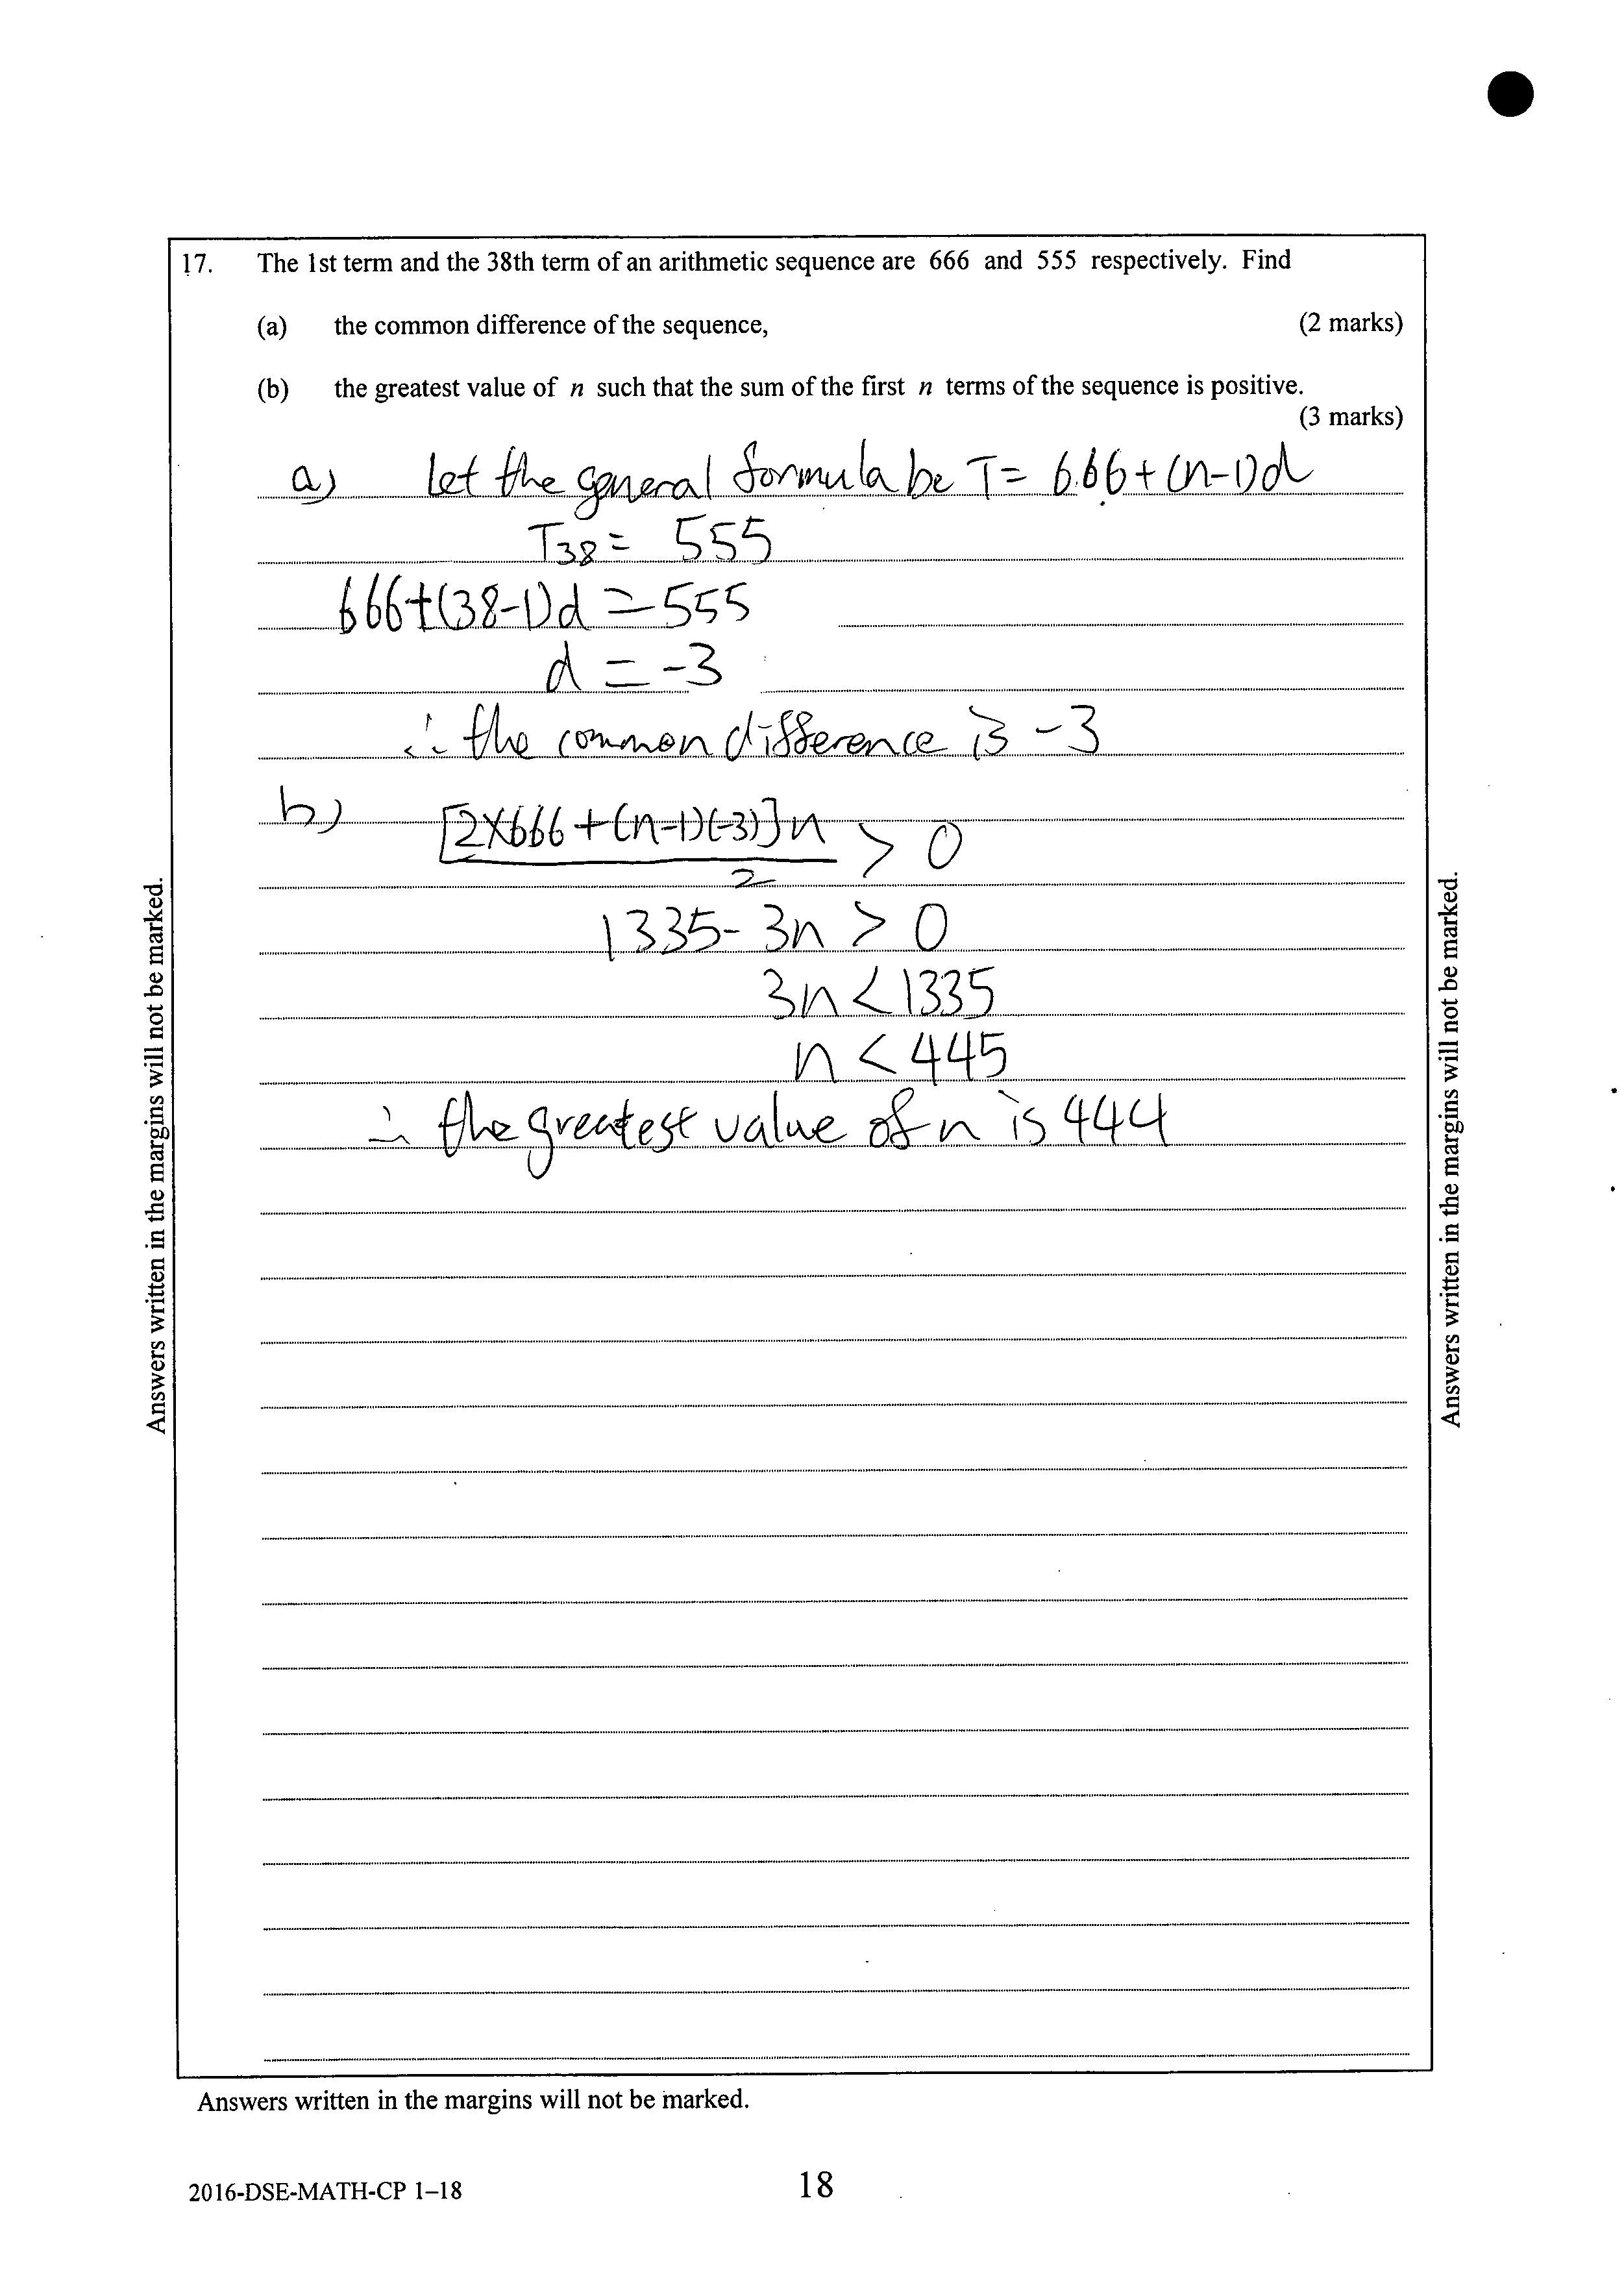 17. The 1st term and the 38th term of an arithmetic sequence are 666 and 555 respectively. Find
(a) the common difference of the sequence, (2 marks)
(b) the greatest value of n such that the sum of the first n terms of the sequence is positive.
(3 marks)
a) let the general formula be T = 666+(n-1)d
T38 = 555
666+(38-1)d = 555
d = -3
∴ the common difference is -3
b) [2×666+(n-1)(-3)]n / 2 > 0
1335-3n > 0
3n < 1335
n < 445
∴ the greatest value of n is 444
Answers written in the margins will not be marked.
Answers written in the margins will not be marked.
Answers written in the margins will not be marked.
2016-DSE-MATH-CP 1–18
18